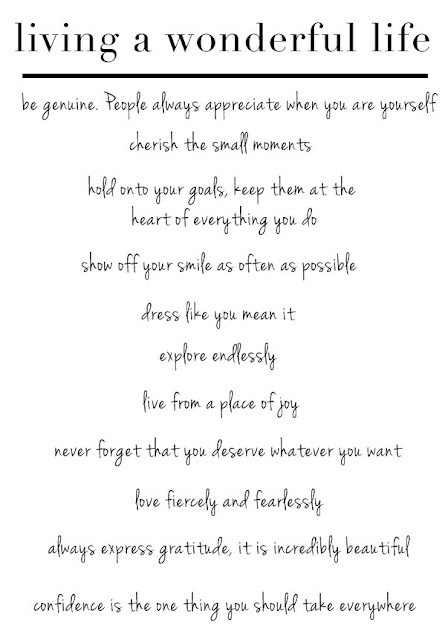 living a wonderful life
be genuine. People always appreciate when you are yourself
cherish the small moments
hold onto your goals, keep them at the
heart of everything you do
show off your smile as often as possible
dress like you mean it
explore endlessly
live from a place of joy
never forget that you deserve whatever you want
love fiercely and fearlessly
always express gratitude, it is incredibly beautiful
confidence is the one thing you should take everywhere